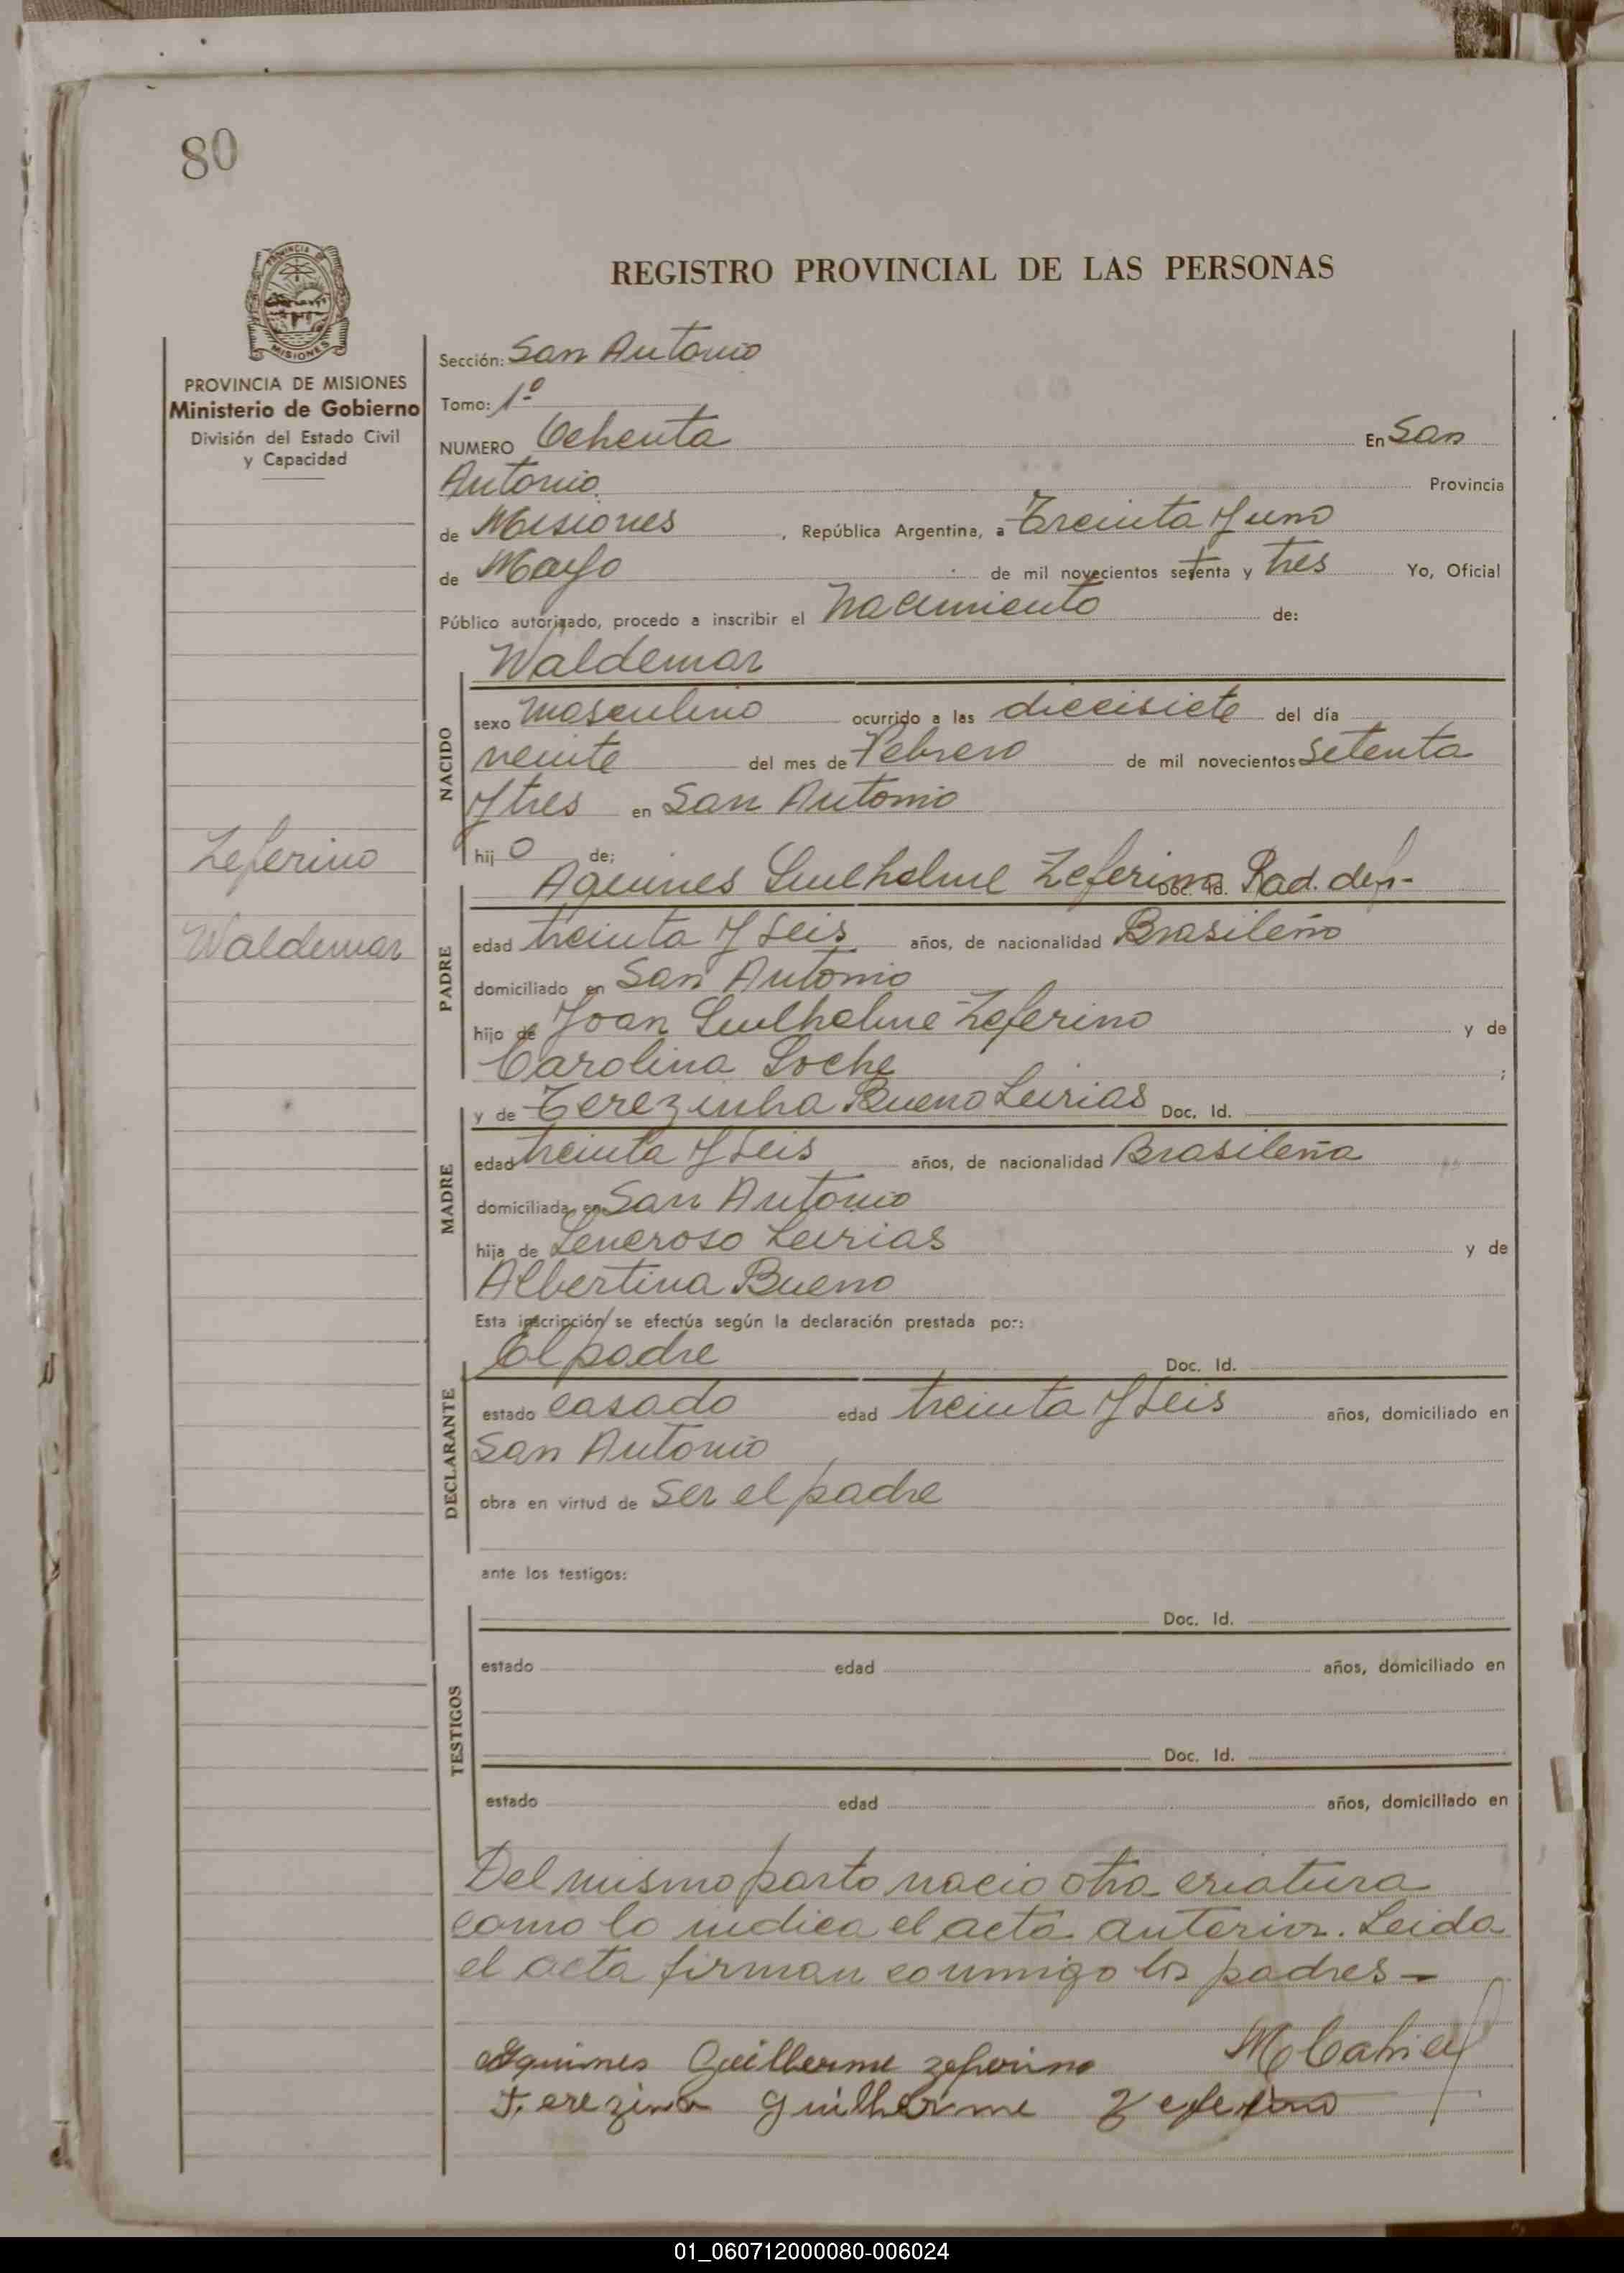 80
PROVINCIA DE
MISIONES
PROVINCIA DE MISIONES
Ministerio de Gobierno
División del Estado Civil
y Capacidad
REGISTRO PROVINCIAL DE LAS PERSONAS
Sección: San Antonio
Tomo: 1º
NUMERO Ochenta En San
Antonio Provincia
de Misiones , República Argentina, a Treinta y uno
de Mayo de mil novecientos setenta y tres Yo, Oficial
Público autorizado, procedo a inscribir el nacimiento de:
Waldemar
NACIDO
sexo masculino ocurrido a las diecisiete del día
veinte del mes de Febrero de mil novecientos setenta
y tres en San Antonio
hijo de:
Zeferino
Waldemar
PADRE
Aquines Guilhelme Zeferino Doc. Id. Rad. def.-
edad treinta y seis años, de nacionalidad Brasileño
domiciliado en San Antonio
hijo de Joan Guilhelme Zeferino y de
Carolina Goche ;
MADRE
y de Terezinha Bueno Leirias Doc. Id.
edad treinta y seis años, de nacionalidad Brasileña
domiciliada en San Antonio
hija de Generoso Leirias y de
Albertina Bueno
Esta inscripción se efectúa según la declaración prestada por:
DECLARANTE
El padre Doc. Id.
estado casado edad treinta y seis años, domiciliado en
San Antonio
obra en virtud de ser el padre
ante los testigos:
TESTIGOS
Doc. Id.
estado edad años, domiciliado en
Doc. Id.
estado edad años, domiciliado en
Del mismo parto nacio otra criatura
como lo indica el acta anterior. Leida
el acta firman conmigo los padres -
Aquines Guilherme Zeferino
Terezina Guilherme Zeferino
01_060712000080-006024